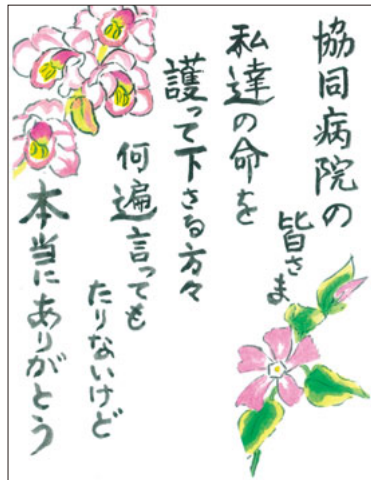 協同病院の
皆さま
私達の命を
護って下さる方々
何遍言っても
たりないけど
本当にありがとう